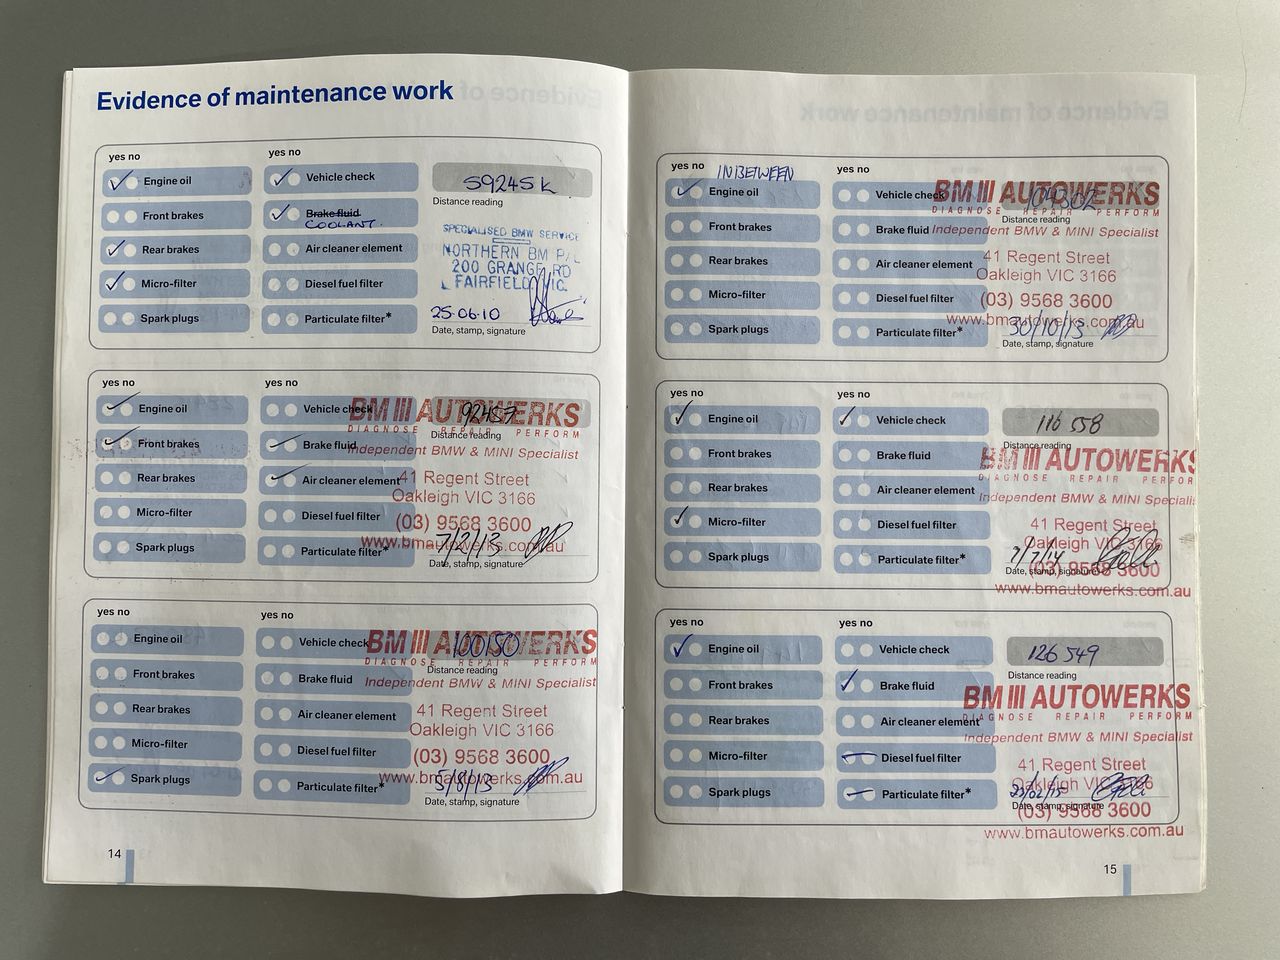 Evidence of maintenance work
yes no
yes no
Engine oil
Vehicle check
59245 k
Distance reading
Front brakes
Brake fluid
COOLANT
Rear brakes
Air cleaner element
Micro-filter
Diesel fuel filter
Spark plugs
Particulate filter*
SPECIALISED BMW SERVICE
NORTHERN BM P/L
200 GRANGE RD
FAIRFIELD VIC.
25-06-10
Date, stamp, signature
yes no
yes no
Engine oil
Vehicle check
92457
BM III AUTOWERKS
DIAGNOSE REPAIR PERFORM
Distance reading
Front brakes
Brake fluid
Independent BMW & MINI Specialist
Rear brakes
Air cleaner element
41 Regent Street
Oakleigh VIC 3166
Micro-filter
Diesel fuel filter
(03) 9568 3600
www.bmautowerks.com.au
Spark plugs
Particulate filter*
7/2/13
Date, stamp, signature
yes no
yes no
Engine oil
Vehicle check
100150
BM III AUTOWERKS
DIAGNOSE REPAIR PERFORM
Distance reading
Front brakes
Brake fluid
Independent BMW & MINI Specialist
Rear brakes
Air cleaner element
41 Regent Street
Oakleigh VIC 3166
Micro-filter
Diesel fuel filter
(03) 9568 3600
www.bmautowerks.com.au
Spark plugs
Particulate filter*
5/8/13
Date, stamp, signature
14
yes no
INBETWEEN
yes no
Engine oil
Vehicle check
BM III AUTOWERKS
DIAGNOSE REPAIR PERFORM
Distance reading
Front brakes
Brake fluid
Independent BMW & MINI Specialist
Rear brakes
Air cleaner element
41 Regent Street
Oakleigh VIC 3166
Micro-filter
Diesel fuel filter
(03) 9568 3600
www.bmautowerks.com.au
Spark plugs
Particulate filter*
30/10/13
Date, stamp, signature
yes no
yes no
Engine oil
Vehicle check
116 558
Distance reading
Front brakes
Brake fluid
BM III AUTOWERKS
DIAGNOSE REPAIR PERFOR
Rear brakes
Air cleaner element
Independent BMW & MINI Speciali
Micro-filter
Diesel fuel filter
41 Regent Street
Oakleigh VIC 3166
Spark plugs
Particulate filter*
Date, stamp, signature
(03) 9568 3600
www.bmautowerks.com.au
yes no
yes no
Engine oil
Vehicle check
126 549
Distance reading
Front brakes
Brake fluid
BM III AUTOWERKS
DIAGNOSE REPAIR PERFORM
Rear brakes
Air cleaner element
Independent BMW & MINI Specialist
Micro-filter
Diesel fuel filter
41 Regent Street
Oakleigh VIC 3166
Spark plugs
Particulate filter*
Date, stamp, signature
(03) 9568 3600
www.bmautowerks.com.au
15